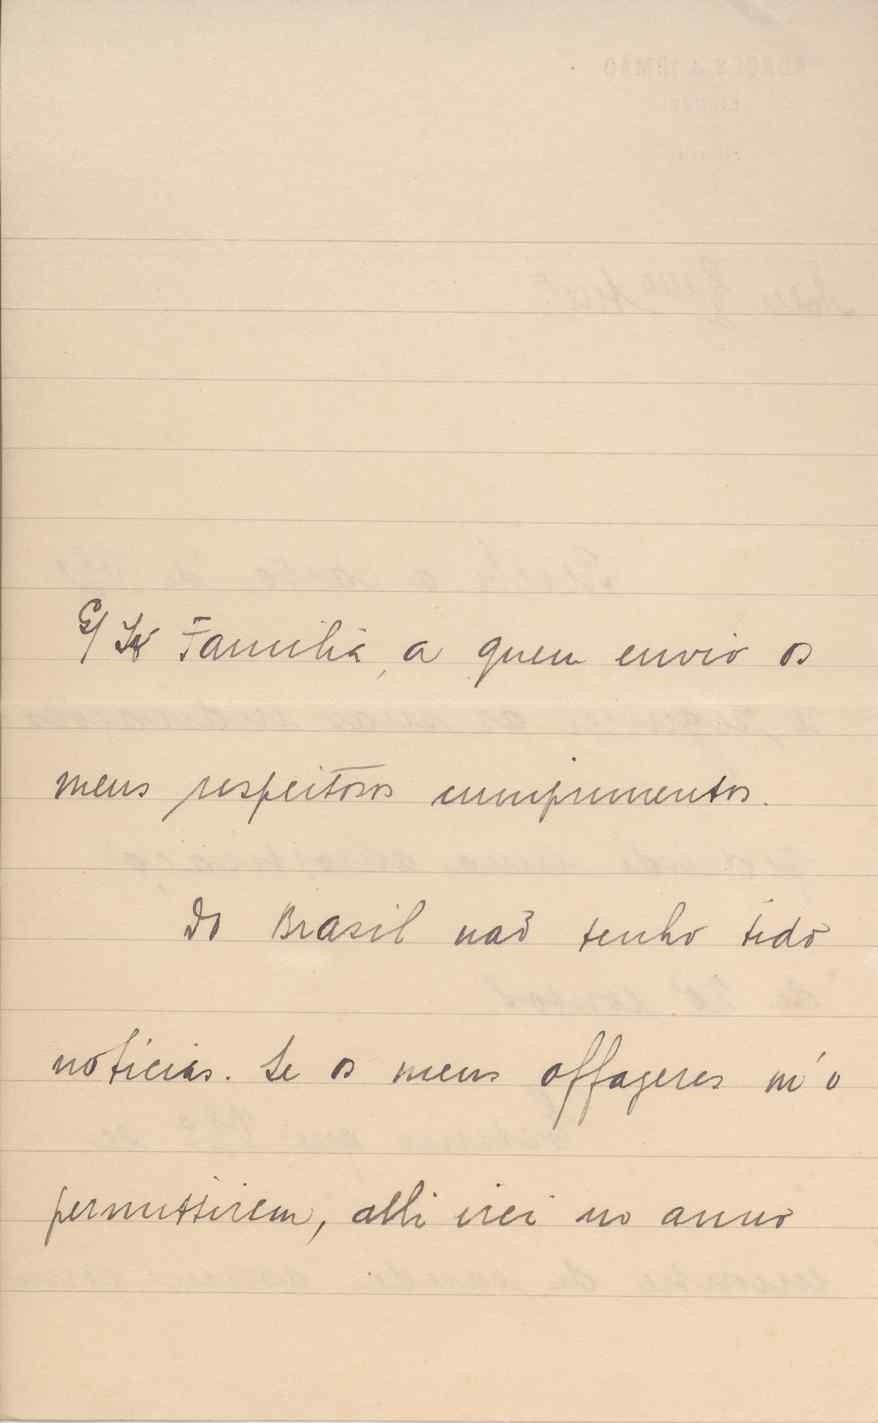 Familia, a quem envio os
meus respeitosos cumprimentos.
Do Brasil naõ tenho tido
noticias. Se os meus affazeres m'o
permittirem, alli irei no anno